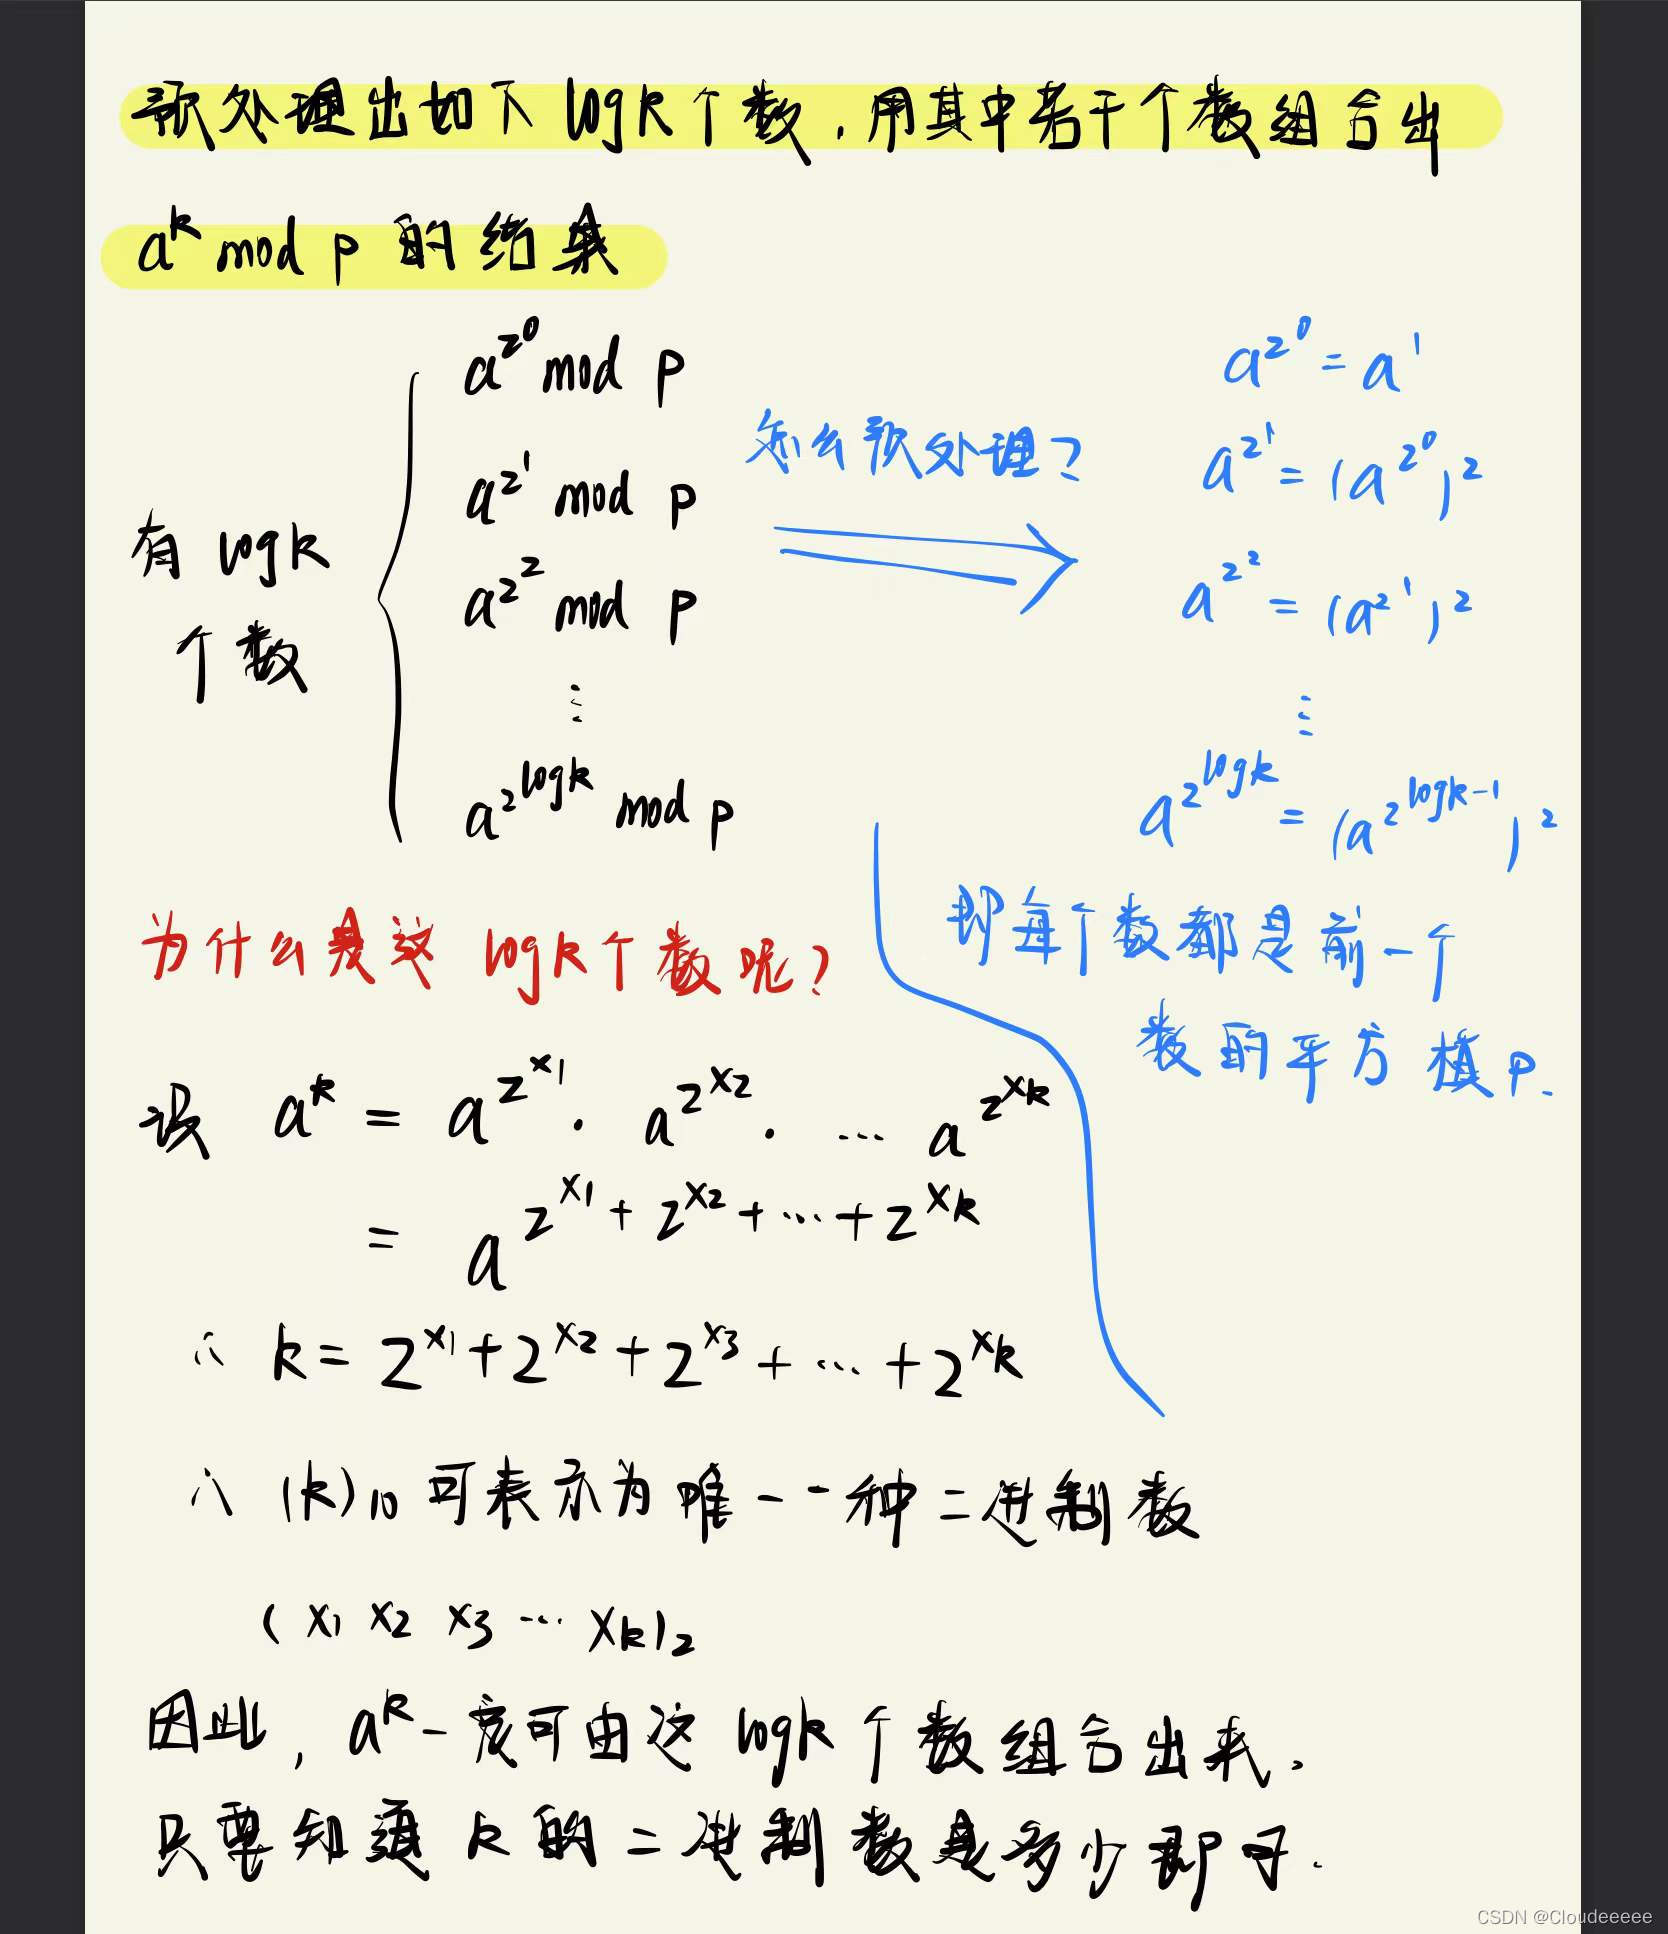 预处理出如下 logk个数，用其中若干个数组合出
a^k mod p 的结果
有 logk
个数
a^{2^0} mod p
a^{2^1} mod p
a^{2^2} mod p
⋮
a^{2^{logk}} mod p
怎么预处理？
a^{2^0} = a^1
a^{2^1} = (a^{2^0})^2
a^{2^2} = (a^{2^1})^2
⋮
a^{2^{logk}} = (a^{2^{logk-1}})^2
即每个数都是前一个
数的平方模p.
为什么是这 logk个数呢？
设 a^k = a^{2^{x_1}} · a^{2^{x_2}} · … a^{2^{x_k}}
= a^{2^{x_1} + 2^{x_2} + … + 2^{x_k}}
∴ k = 2^{x_1} + 2^{x_2} + 2^{x_3} + … + 2^{x_k}
∴ (k)_{10} 可表示为唯一一种二进制数
(x_1 x_2 x_3 … x_k)_2
因此, a^k一定可由这 logk 个数组合出来。
只要知道 k 的二进制数是多少即可.
CSDN @Cloudeeeee